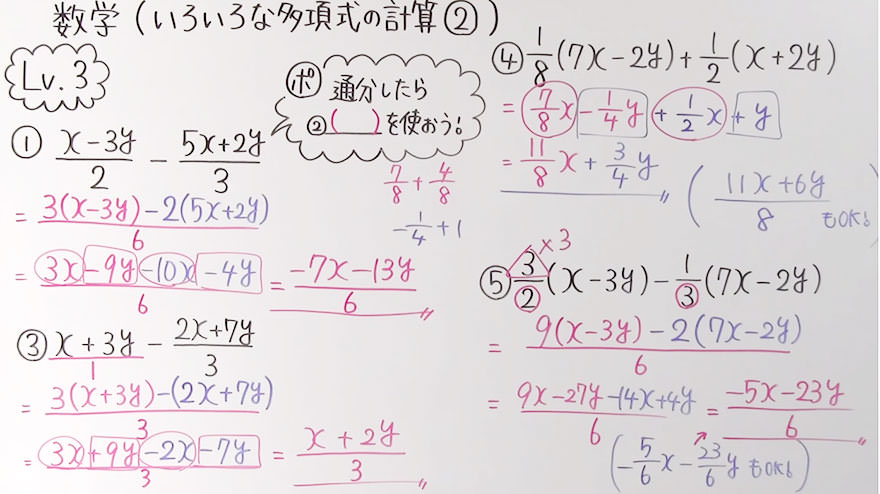 数学(いろいろな多項式の計算②)
Lv.3
ポ 通分したら
②( )を使おう!
① (x-3y)/2 - (5x+2y)/3
= (3(x-3y)-2(5x+2y))/6
= (3x-9y-10x-4y)/6 = (-7x-13y)/6
7/8 + 4/8
-1/4 + 1
③ (x+3y)/1 - (2x+7y)/3
= (3(x+3y)-(2x+7y))/3
= (3x+9y-2x-7y)/3 = (x+2y)/3
④ 1/8(7x-2y)+1/2(x+2y)
= 7/8x-1/4y+1/2x+y
= 11/8x+3/4y ((11x+6y)/8 もOK!)
×3
⑤ 3/2(x-3y)-1/3(7x-2y)
= (9(x-3y)-2(7x-2y))/6
= (9x-27y-14x+4y)/6 = (-5x-23y)/6
(-5/6x-23/6y もOK!)